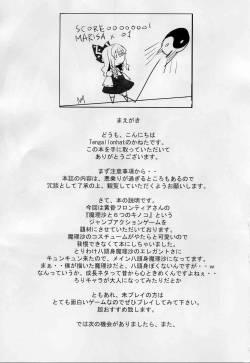 SCORE 00000001
MARISA x 01
まえがき
どうも、こんにちは
Tengallonhatのかねたです。
この本を手に取っていただいて
ありがとうございます。
まず注意事項から・・
本誌の内容は、悪乗りが過ぎるところもあるので
冗談として了承の上、観覧していただくようお願いします。
さて、本の説明です。
今回は黄昏フロンティアさんの
『魔理沙と6つのキノコ』という
ジャンプアクションゲームを
題材にさせていただいております。
魔理沙のコスチュームがやたらと可愛いので
我慢できなくて本にしちゃいました。
とりわけ八頭身魔理沙のエレガントさに
キュンキュン来たので、メイン八頭身魔理沙になってます。
まぁ・・僕が描いた魔理沙だと、八頭身ぽくないんですが・・w
なんっていうか、成長ネタって昔から心ときめくんですよねぇ・・
ろりキャラが大人になってみたりだとか
ともあれ、未プレイの方は
とても面白いゲームなのでぜひプレイしてみて下さい。
超おすすめ致します。
では次の機会がありましたら、また、